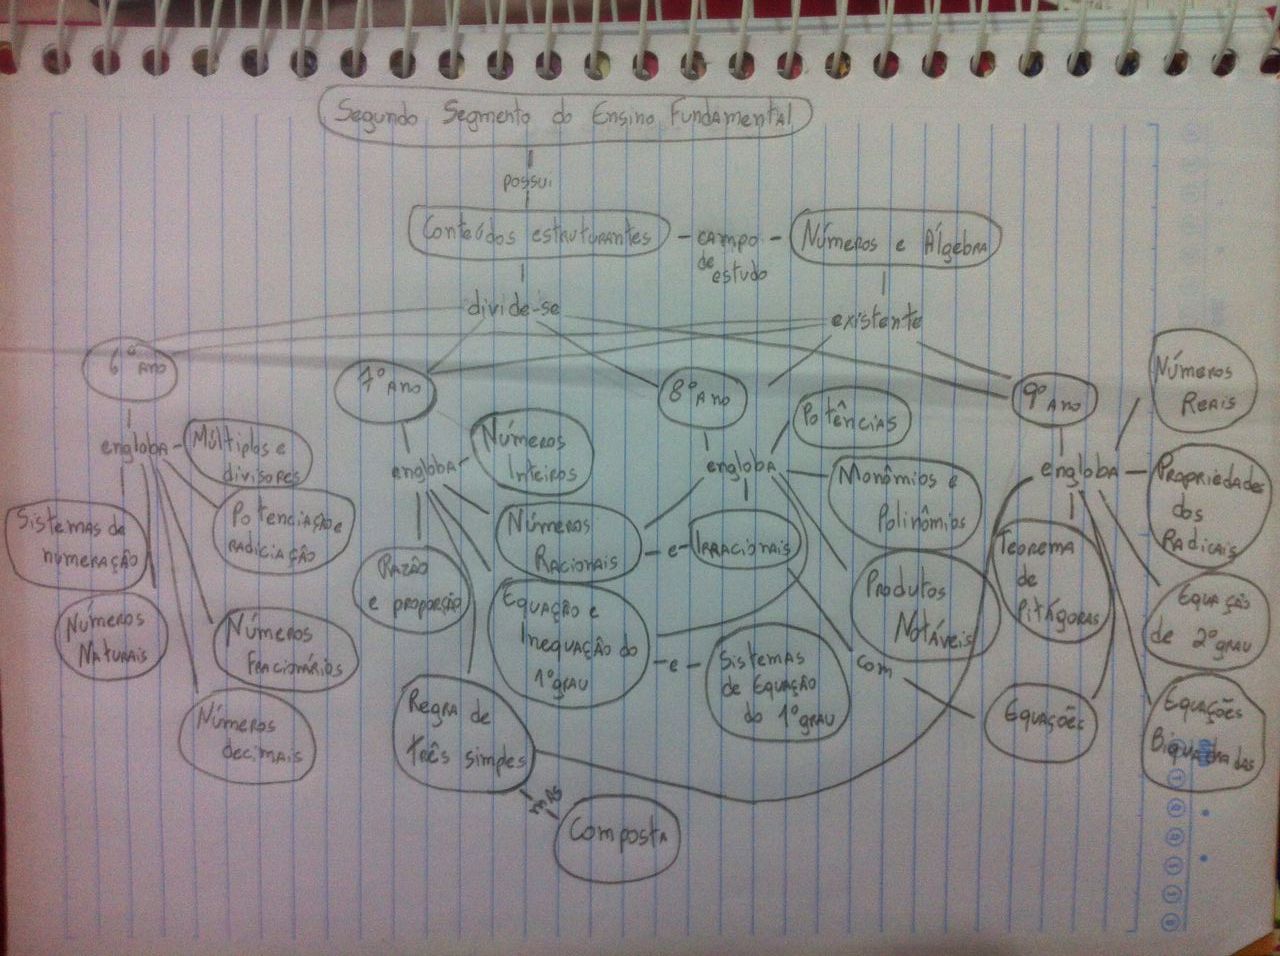 Segundo Segmento do Ensino Fundamental
possui
Conteúdos estruturantes
campo
de
estudo
Números e Álgebra
divide-se
existente
6º Ano
7º Ano
8º Ano
9º Ano
engloba
Múltiplos e
divisores
Potenciação e
radiciação
Sistemas de
numeração
Números
Naturais
Números
Fracionários
Números
decimais
engloba
Números
Inteiros
Números
Racionais
Razão
e proporção
Equação e
Inequação do
1º grau
Regra de
três simples
mas
Composta
engloba
Potências
Monômios e
Polinômios
e
Irracionais
Produtos
Notáveis
e
Sistemas
de Equação
do 1º grau
com
engloba
Números
Reais
Propriedades
dos
Radicais
Teorema
de
Pitágoras
Equação
de 2º grau
Equações
Equações
Biquadradas